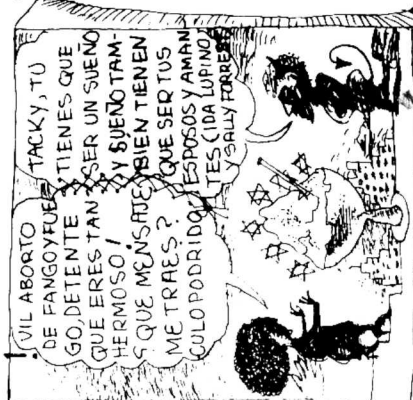 ¡VIL ABORTO
DE FANGO Y FUE-
GO, DETENTE
QUE ERES TAN
HERMOSO!
¿QUE MENSAJE
ME TRAES?
CULO PODRIDO
TACKY, TU
TIENES QUE
SER UN SUEÑO
Y SUEÑO TAM-
BIEN TIENEN
QUE SER TUS
ESPOSOS Y AMAN
TES (IDA LUPINO
Y SALLY FORREST